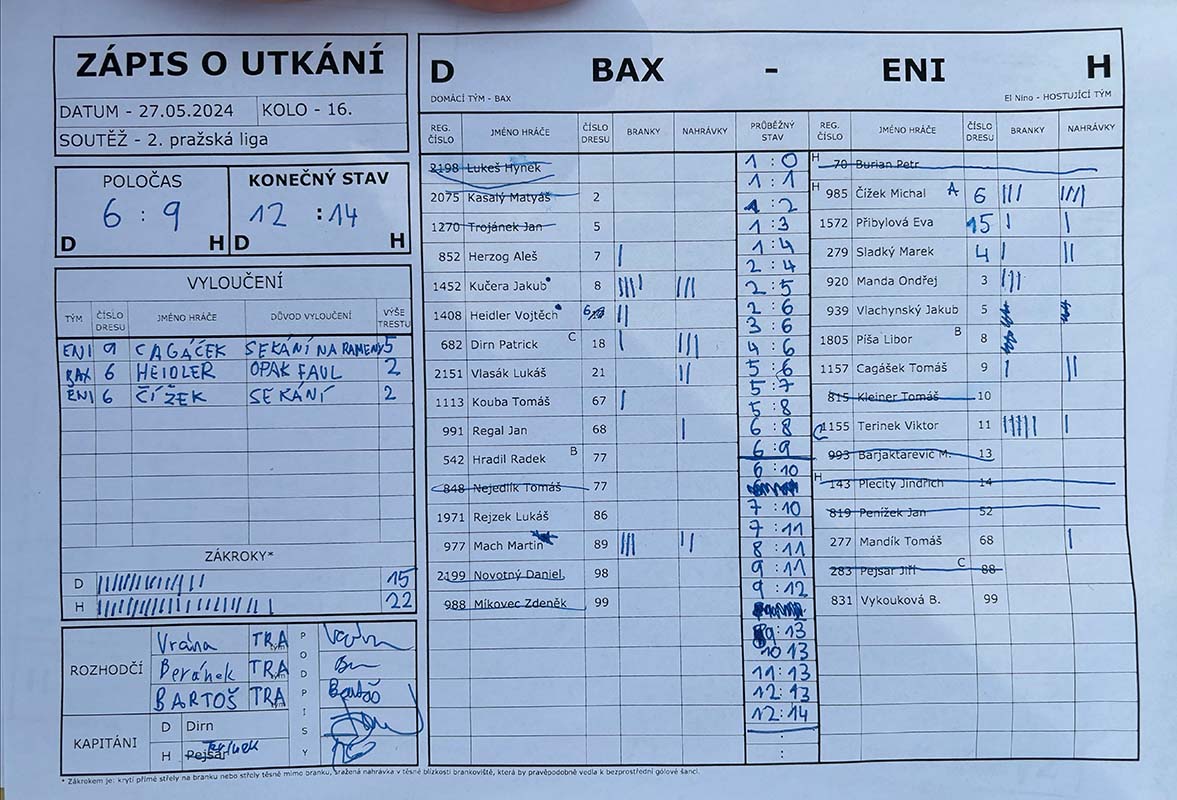 ZÁPIS O UTKÁNÍ
DATUM - 27.05.2024 KOLO - 16.
SOUTĚŽ - 2. pražská liga
POLOČAS KONEČNÝ STAV
6 : 9 12 : 14
D H D H
VYLOUČENÍ
TÝM ČÍSLO DRESU JMÉNO HRÁČE DŮVOD VYLOUČENÍ VÝŠE TRESTU
ENI 9 CAGÁČEK SEKÁNÍ NA RAMENY 5
BAX 6 HEIDLER OPAK FAUL 2
ENI 6 ČÍŽEK SEKÁNÍ 2
ZÁKROKY*
D 15
H 22
ROZHODČÍ
Vrána TRA
Beránek TRA
BARTOŠ TRA
PODPISY
KAPITÁNI
D Dirn
H Pejsar
D BAX - ENI H
DOMÁCÍ TÝM - BAX El Nino - HOSTUJÍCÍ TÝM
REG. ČÍSLO JMÉNO HRÁČE ČÍSLO DRESU BRANKY NAHRÁVKY PRŮBĚŽNÝ STAV REG. ČÍSLO JMÉNO HRÁČE ČÍSLO DRESU BRANKY NAHRÁVKY
2198 Lukeš Hynek
2075 Kasalý Matyáš 2
1270 Trojánek Jan 5
852 Herzog Aleš 7
1452 Kučera Jakub 8
1408 Heidler Vojtěch 6
682 Dirn Patrick C 18
2151 Vlasák Lukáš 21
1113 Kouba Tomáš 67
991 Regal Jan 68
542 Hradil Radek B 77
848 Nejedlík Tomáš 77
1971 Rejzek Lukáš 86
977 Mach Martin 89
2199 Novotný Daniel 98
988 Míkovec Zdeněk 99
1 : 0
1 : 1
1 : 2
1 : 3
1 : 4
2 : 4
2 : 5
2 : 6
3 : 6
4 : 6
5 : 6
5 : 7
5 : 8
6 : 8
6 : 9
6 : 10
7 : 10
7 : 11
8 : 11
9 : 11
9 : 12
9 : 13
10 13
11 : 13
12 : 13
12 : 14
:
H 70 Burian Petr
H 985 Čížek Michal A 6
1572 Přibylová Eva 15
279 Sladký Marek 4
920 Manda Ondřej 3
939 Vlachynský Jakub 5
1805 Píša Libor B 8
1157 Cagášek Tomáš 9
815 Kleiner Tomáš 10
C 1155 Terinek Viktor 11
993 Barjaktarevič M. 13
H 143 Plecitý Jindřich 14
819 Penížek Jan 52
277 Mandík Tomáš 68
283 Pejsar Jiří C 88
831 Vykouková B. 99
* Zákrokem je: krytí přímé střely na branku nebo střely těsně mimo branku, sražená nahrávka v těsné blízkosti brankoviště, která by pravěpodobně vedla k bezprostřední gólové šanci.